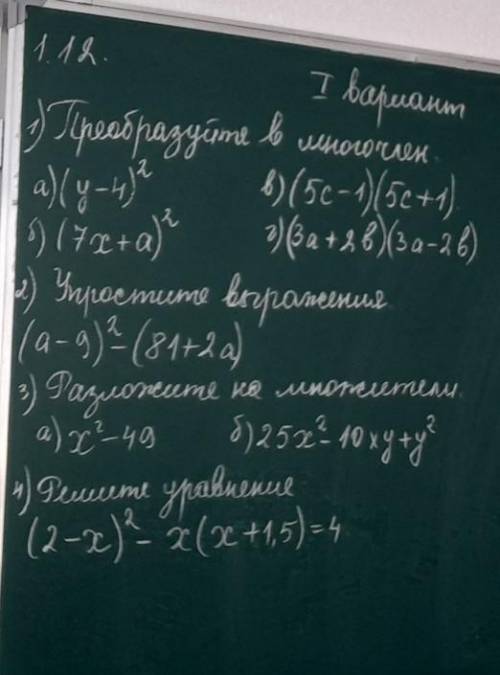 1.12.
I вариант
1) Преобразуйте в многочлен.
а) (y-4)² в) (5c-1)(5c+1)
б) (7x+a)² г) (3a+2b)(3a-2b)
2) Упростите выражения.
(a-9)²-(81+2a)
3) Разложите на множители.
а) x²-49 б) 25x²-10xy+y²
4) Решите уравнение
(2-x)²-x(x+1,5)=4